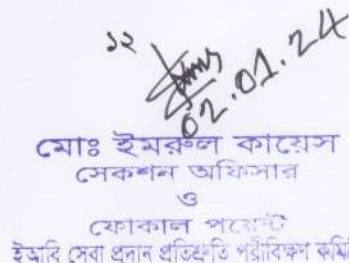 ১২
02.01.24
মোঃ ইমরুল কায়েস
সেকশন অফিসার
ও
ফোকাল পয়েন্ট
ইআবি সেবা প্রদান প্রতিশ্রুতি পরীবিক্ষণ কমি